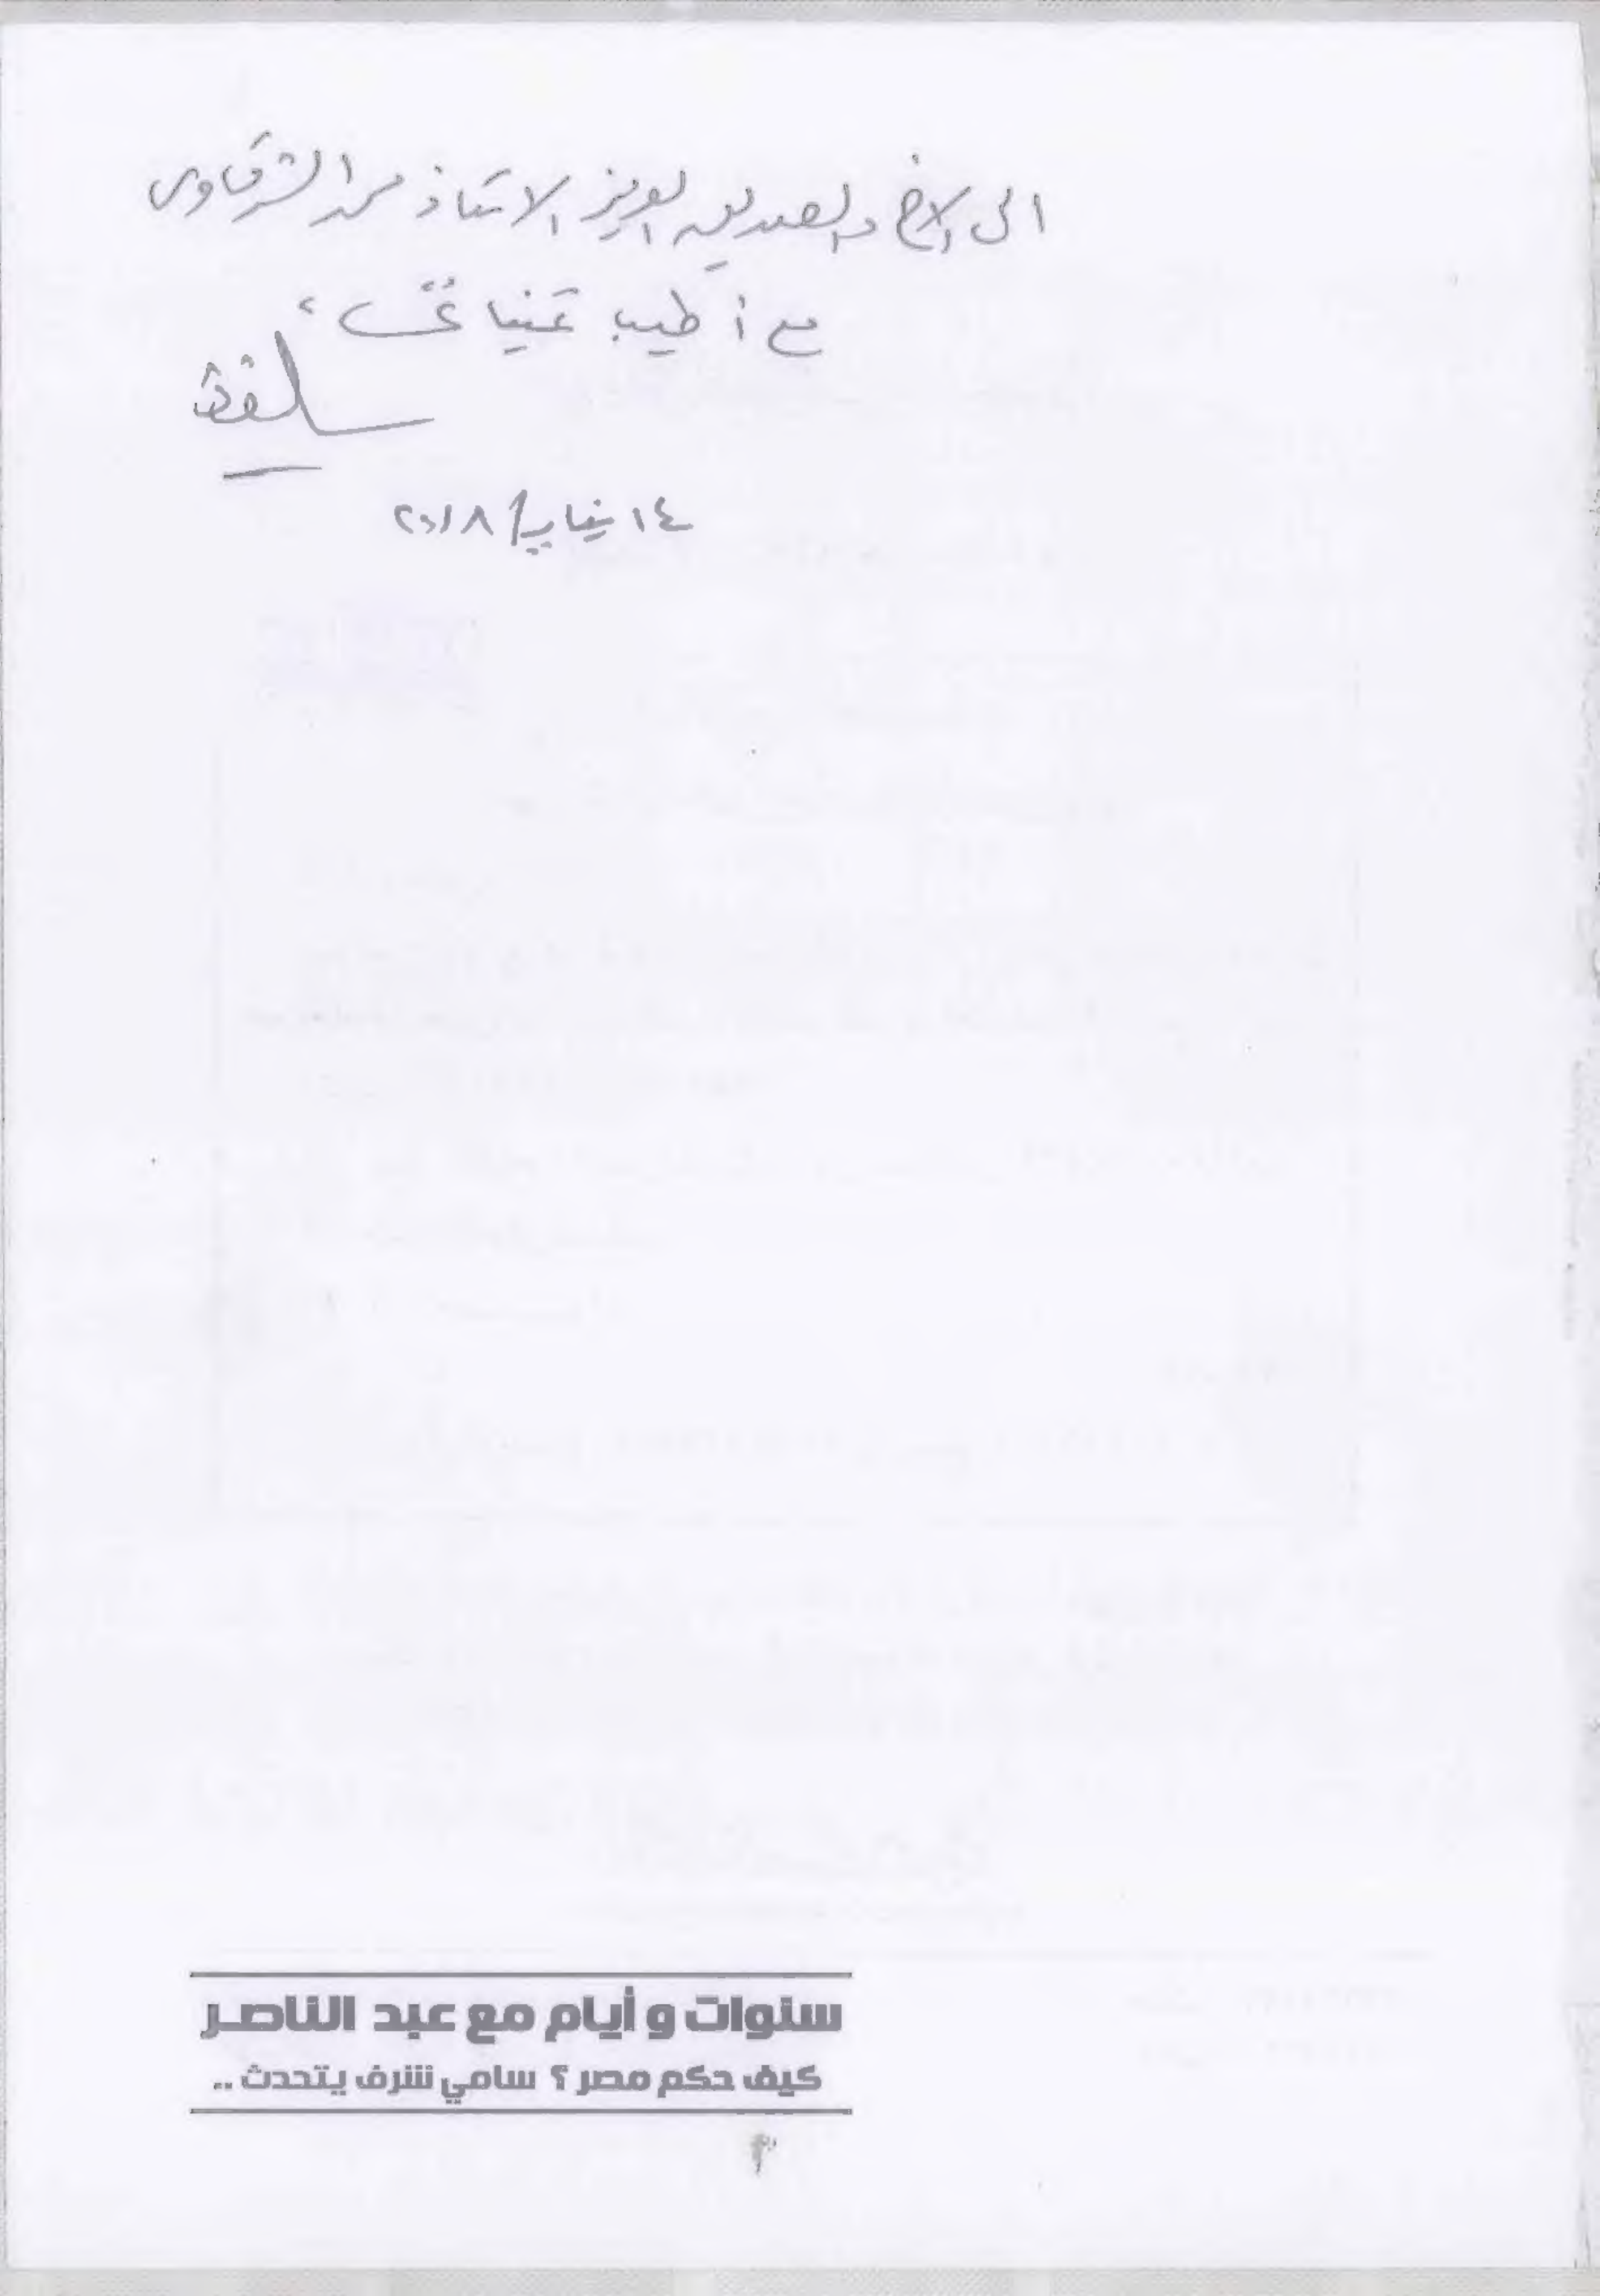 الى الاخ والصديق العزيز الاستاذ محمد الشرقاوى
مع أطيب تمنياتى،
١٤ يناير/ ٢٠١٨
سنوات و أيام مع عبد الناصر
كيف حكم مصر ؟ سامي شرف يتحدث ..